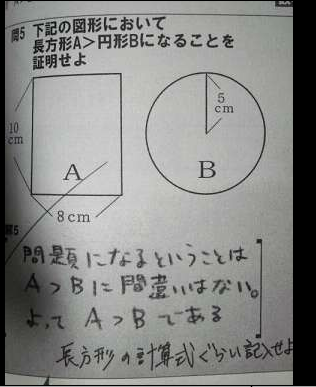 問5 下記の図形において
長方形A>円形Bになることを
証明せよ
10
cm
A
8cm
5
cm
B
問題になるということは
A>Bに間違いはない。
よって A>B である
長方形の計算式ぐらい記入せよ